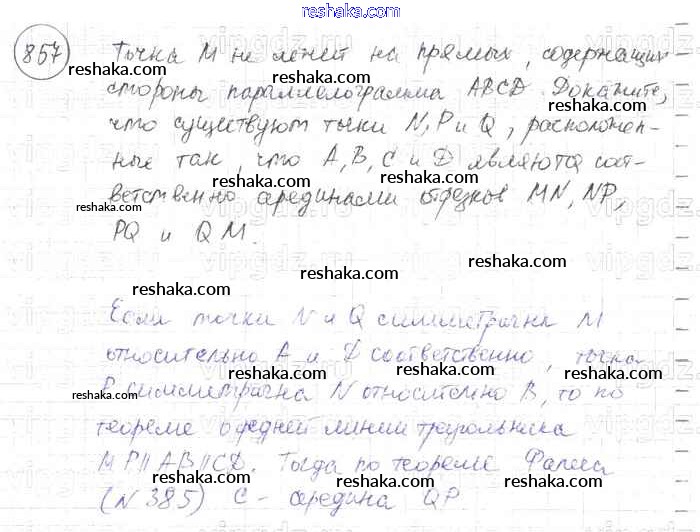 reshaka.com
857 Точка М не лежит на прямых, содержащих
reshaka.com reshaka.com
стороны параллелограмма ABCD. Докажите,
reshaka.com reshaka.com
что существуют точки N, P и Q, расположен-
ные так, что A, B, C и D являются соот-
ветственно серединами отрезков MN, NP,
reshaka.com reshaka.com reshaka.com
PQ и QM.
reshaka.com
reshaka.com
Если точки N и Q симметричны M
относительно A и D соответственно, точка
reshaka.com
P симметрична N относительно B, то по
reshaka.com reshaka.com reshaka.com
теореме о средней линии треугольника
MP || AB || CD. Тогда по теореме Фалеса
reshaka.com reshaka.com
(N 385) C - середина QP.
reshaka.com